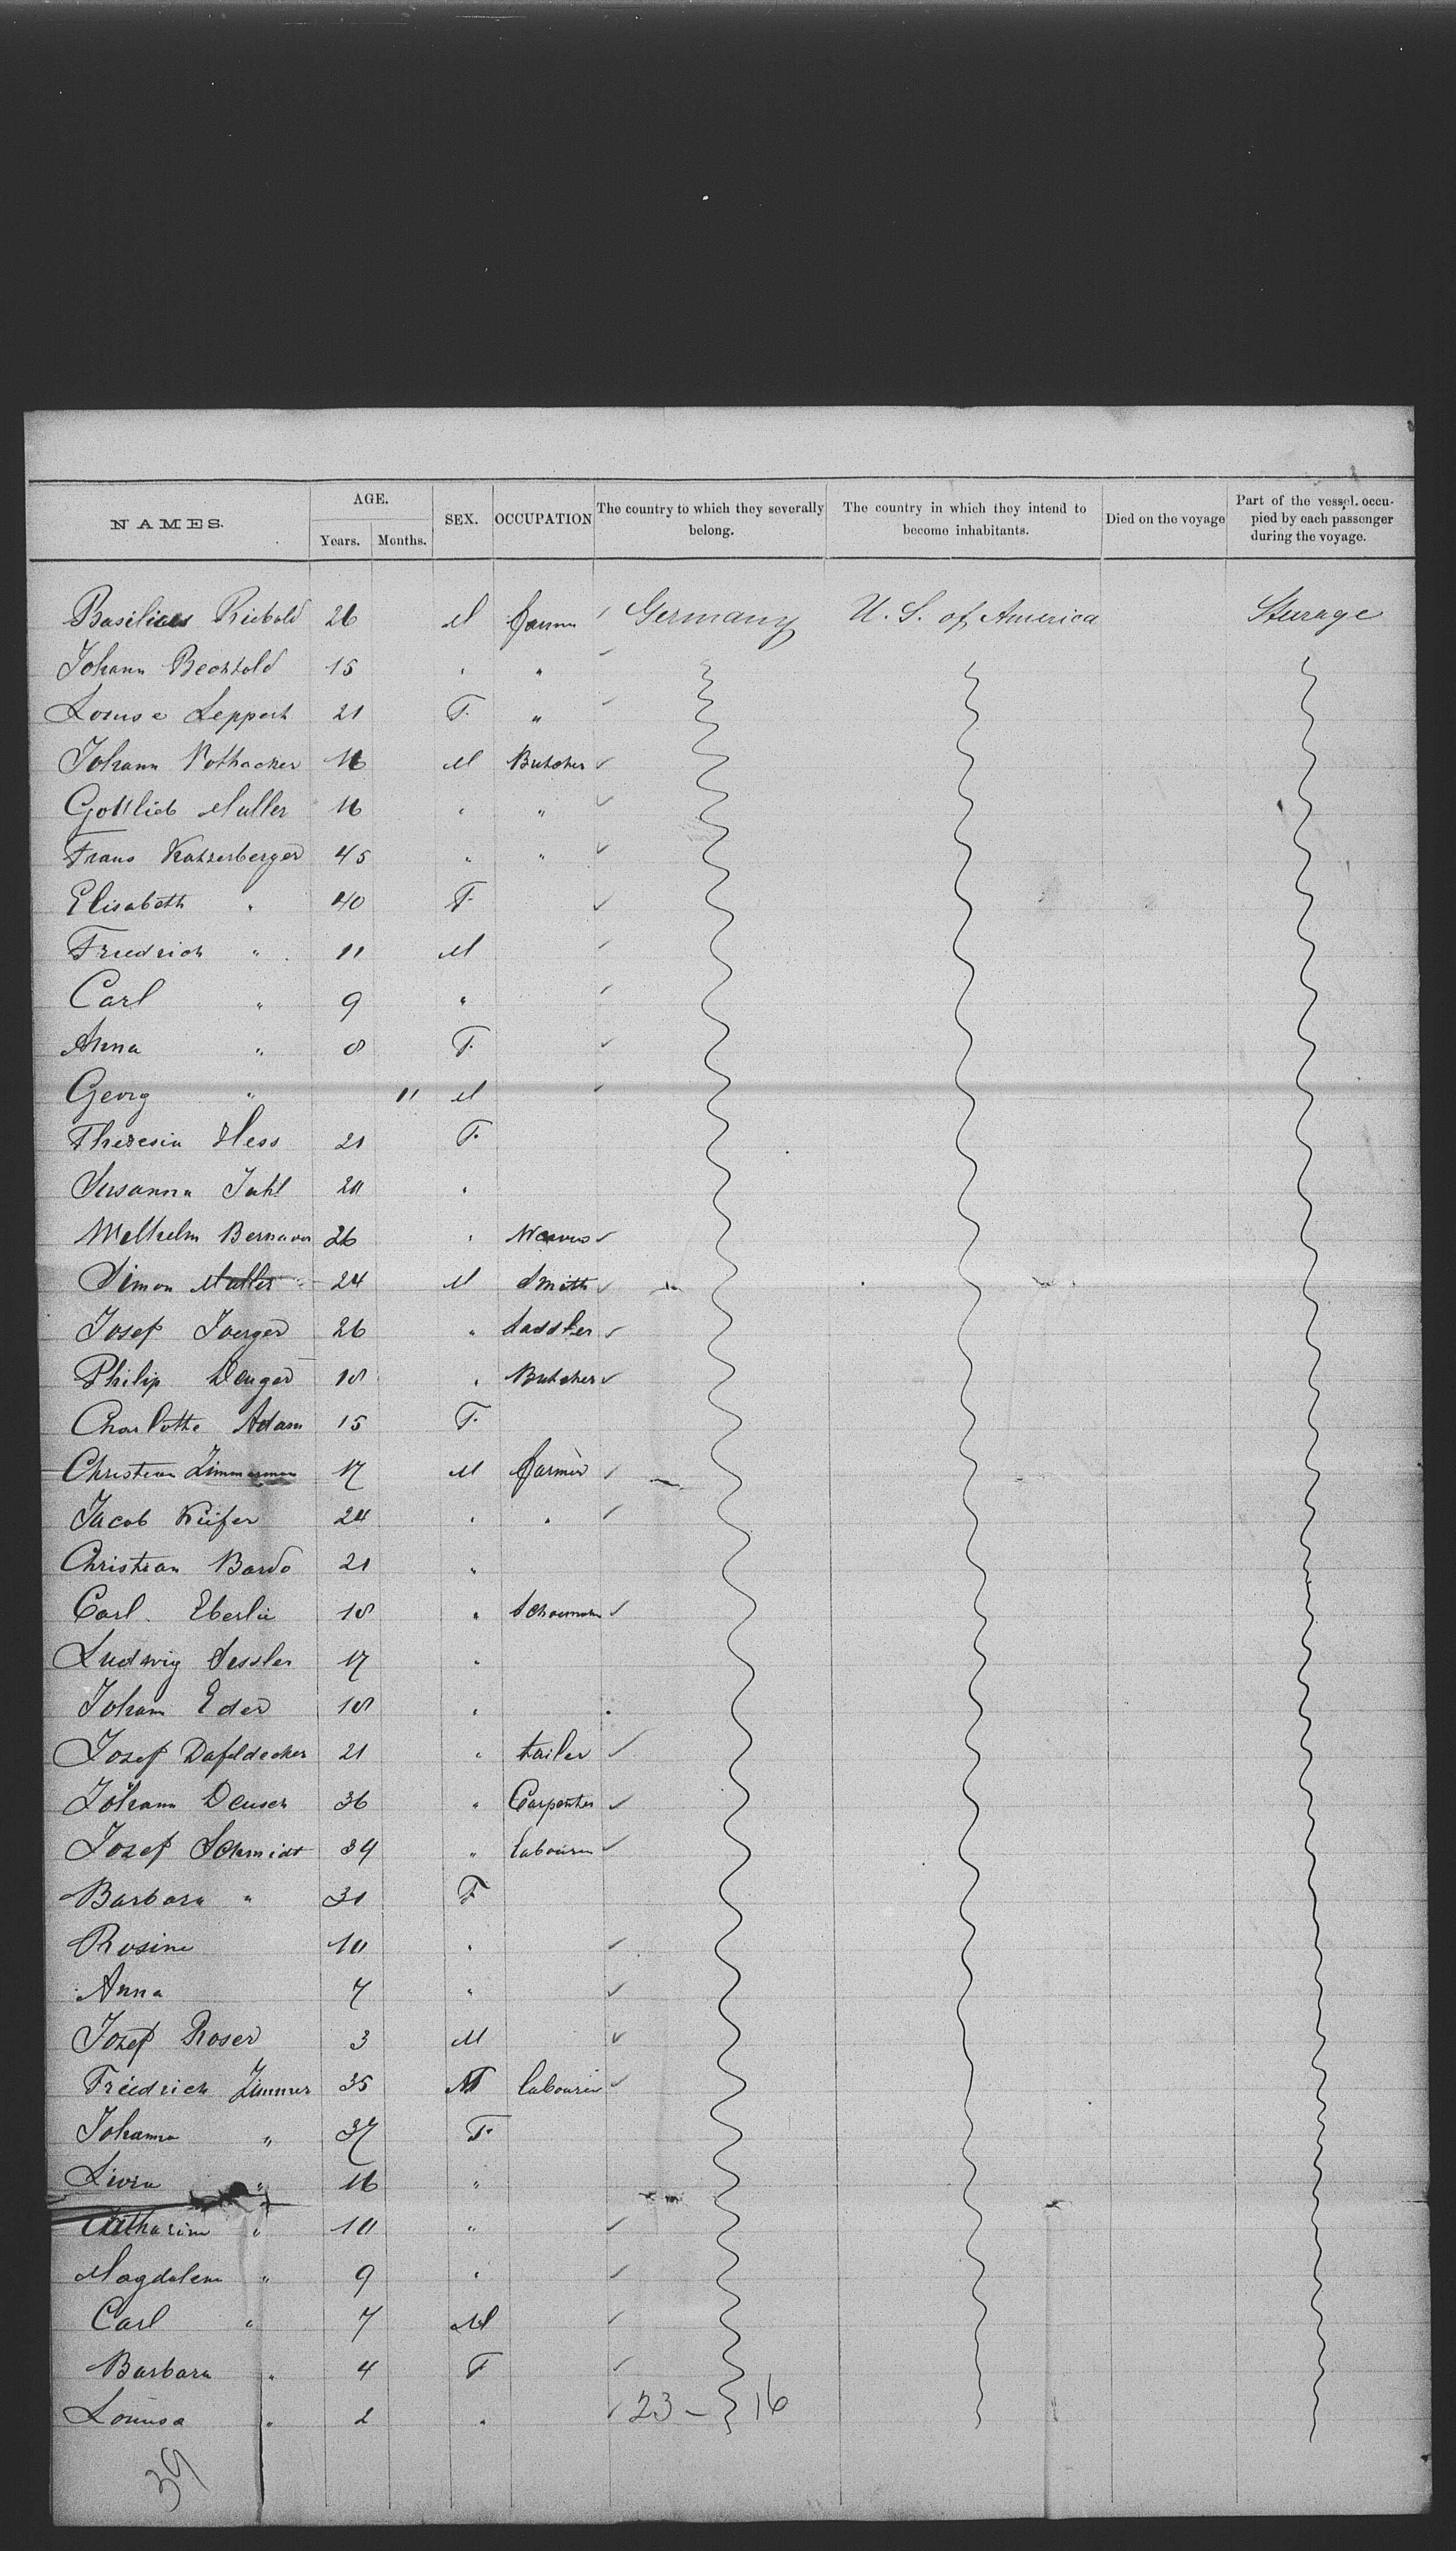 NAMES. AGE. Years. Months. SEX. OCCUPATION The country to which they severally belong. The country in which they intend to become inhabitants. Died on the voyage Part of the vessel occupied by each passenger during the voyage.
Basilius Riebold 26 M farmer Germany U. S. of America Steerage
Johann Bechtold 15 " "
Louise Leppert 21 F. "
Johann Rothacker 16 M Butcher
Gottlieb Muller 16 " "
Frans Katzerberger 45 " "
Elisabeth " 40 F
Friedrich " 11 M
Carl " 9 "
Anna " 8 F.
Georg " 11 M
Theresia Hess 21 F.
Susanna Jahl 20 "
Wilhelm 26 " Weaver
Simon Muller 24 M Smith
Josef Joerger 26 " Saddler
Philip Denger 18 " Butcher
Charlotte Adam 15 F.
Christian Zimmerman 17 M farmer
Jacob Kiefer 24 " "
Christian Bardo 21 "
Carl Eberlie 18 "
Ludwig Sessler 17 "
Johann Eder 18 "
Josef Dafeldecker 21 " tailer
Johann Deuser 36 " Carpenter
Josef Schmidt 39 " labourer
Barbara " 31 F
Rosine 10 "
Anna 7 "
Josef Roser 3 M
Friedrich Zimmer 35 M labourer
Johanna " 37 F.
" 16 "
Catharine " 10 "
Magdalena " 9 "
Carl " 7 M
Barbara " 4 F
Louisa " 2 " 23 - 16
39